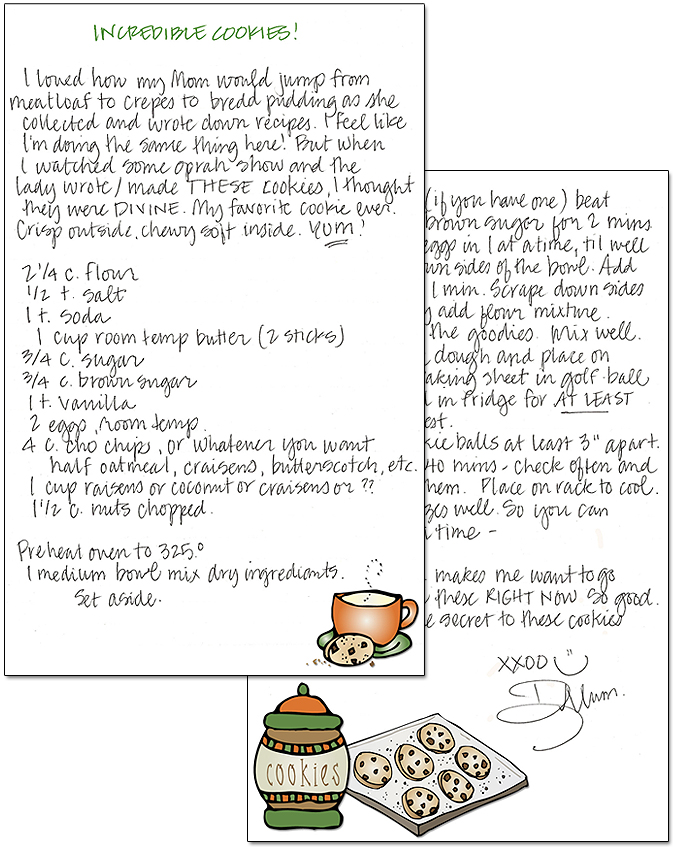 INCREDIBLE COOKIES!
I loved how my Mom would jump from
meatloaf to crepes to bredd pudding as she
collected and wrote down recipes. I feel like
I'm doing the same thing here! But when
I watched some oprah show and the
lady wrote/made THESE cookies, I thought
they were DIVINE. My favorite cookie ever.
Crisp outside, chewy soft inside. YUM!
2 1/4 c. flour
1/2 t. salt
1 t. soda
1 cup room temp butter (2 sticks)
3/4 c. sugar
3/4 c. brown sugar
1 t. vanilla
2 eggs, room temp.
4 c. cho chips, or whatever you want
half oatmeal, craisens, butterscotch, etc.
1 cup raisens or coconut or craisens or ??
1 1/2 c. nuts chopped.
Preheat oven to 325.°
1 medium bowl mix dry ingrediants.
Set aside.
(if you have one) beat
brown sugar for 2 mins
eggs in 1 at a time, til well
wn sides of the bowl. Add
1 min. Scrape down sides
y add flour mixture.
the goodies. Mix well.
dough and place on
aking sheet in golf ball
in fridge for AT LEAST
est.
kie balls at least 3" apart.
40 mins - check often and
hem. Place on rack to cool.
zes well. So you can
time -
makes me want to go
these RIGHT NOW so good.
e secret to these cookies
XXOO
cookies